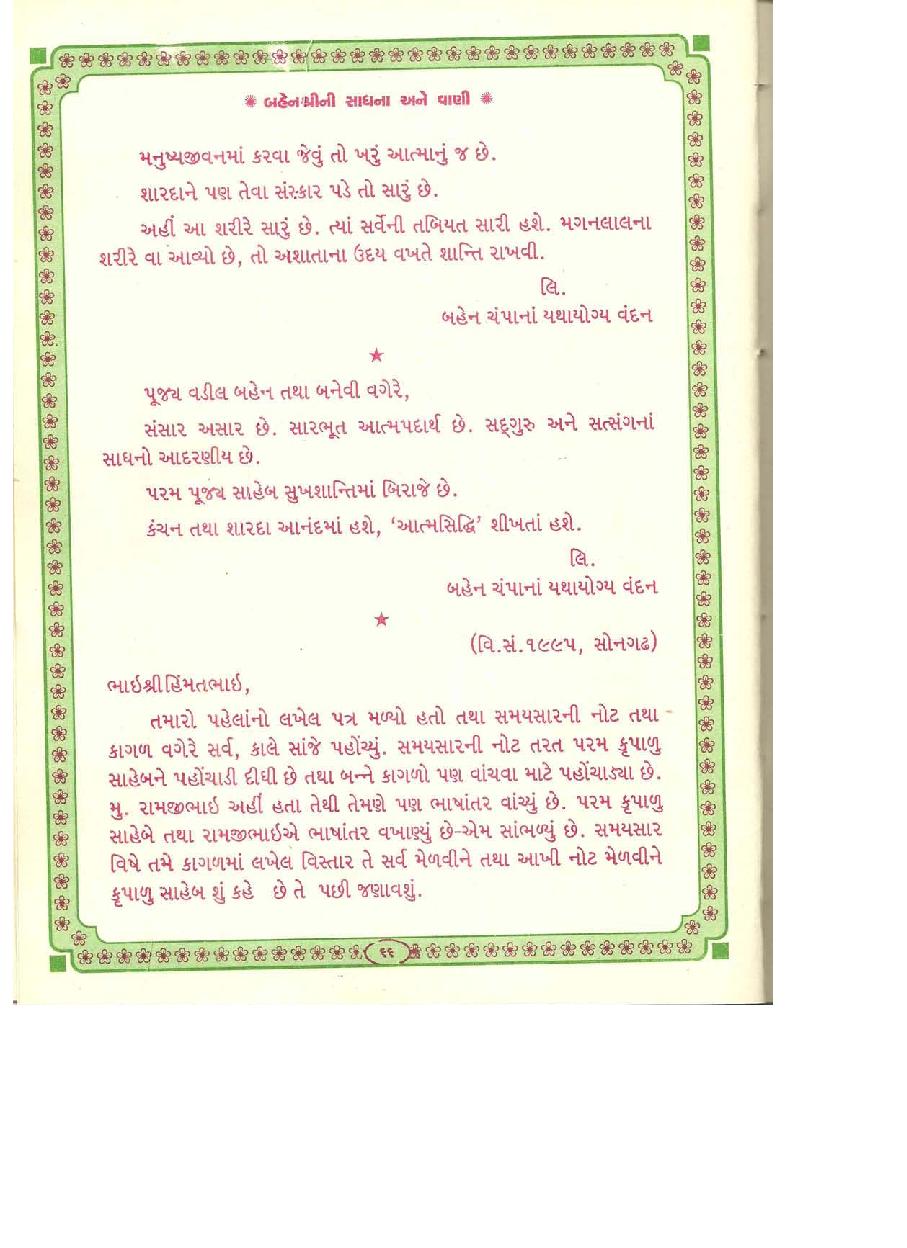 ✺ બહેનશ્રીની સાધના અને વાણી ✺
મનુષ્યજીવનમાં કરવા જેવું તો ખરું આત્માનું જ છે.
શારદાને પણ તેવા સંસ્કાર પડે તો સારું છે.
અહીં આ શરીરે સારું છે. ત્યાં સર્વેની તબિયત સારી હશે. મગનલાલના
શરીરે વા આવ્યો છે, તો અશાતાના ઉદય વખતે શાન્તિ રાખવી.
લિ.
બહેન ચંપાનાં યથાયોગ્ય વંદન
★
પૂજ્ય વડીલ બહેન તથા બનેવી વગેરે,
સંસાર અસાર છે. સારભૂત આત્મપદાર્થ છે. સદ્‌ગુરુ અને સત્સંગનાં
સાધનો આદરણીય છે.
પરમ પૂજ્ય સાહેબ સુખશાન્તિમાં બિરાજે છે.
કંચન તથા શારદા આનંદમાં હશે, ‘આત્મસિદ્ધિ’ શીખતાં હશે.
લિ.
બહેન ચંપાનાં યથાયોગ્ય વંદન
★
(વિ.સં.૧૯૯૫, સોનગઢ)
ભાઇશ્રી હિંમતભાઇ,
તમારો પહેલાંનો લખેલ પત્ર મળ્યો હતો તથા સમયસારની નોટ તથા
કાગળ વગેરે સર્વ, કાલે સાંજે પહોંચ્યું. સમયસારની નોટ તરત પરમ કૃપાળુ
સાહેબને પહોંચાડી દીધી છે તથા બન્ને કાગળો પણ વાંચવા માટે પહોંચાડ્યા છે.
મુ. રામજીભાઇ અહીં હતા તેથી તેમણે પણ ભાષાંતર વાંચ્યું છે. પરમ કૃપાળુ
સાહેબે તથા રામજીભાઇએ ભાષાંતર વખાણ્યું છે-એમ સાંભળ્યું છે. સમયસાર
વિષે તમે કાગળમાં લખેલ વિસ્તાર તે સર્વ મેળવીને તથા આખી નોટ મેળવીને
કૃપાળુ સાહેબ શું કહે છે તે પછી જણાવશું.
૬૬